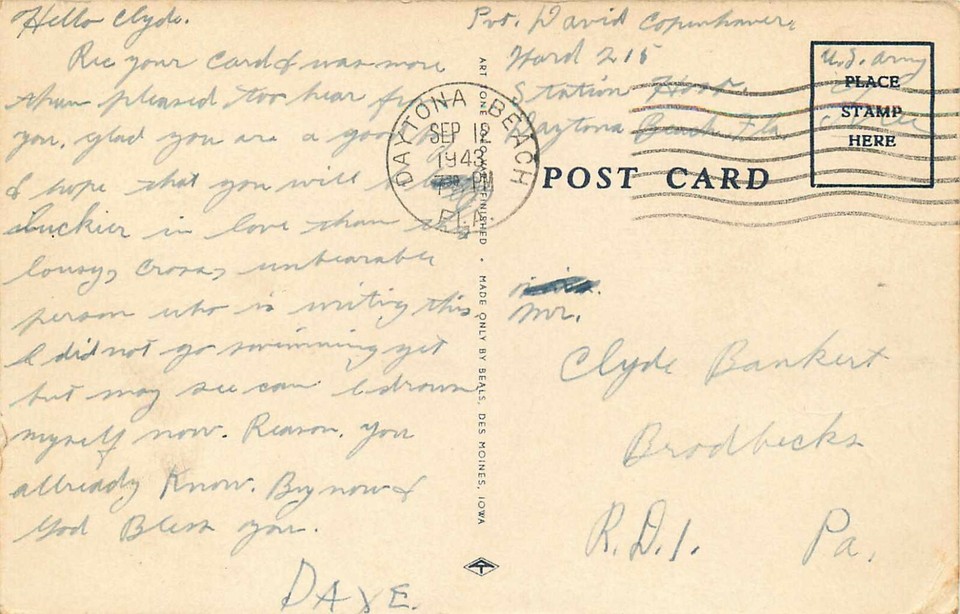 Hello Clyde.
Rec your card & was more
than pleased too hear fr
you, glad you are a good
& hope that you will
luckier in love than this
lousy, cross, unbearable
person who is writing this.
I did not go swimming yet
but may see can I drown
myself now. Reason, you
allready Know. By now &
God Bless you.
DAVE.
Pvt. David Copenhaver
Ward 215
Station Hosp.
Daytona Beach Fla
U.S. Army
PLACE
STAMP
HERE
DAYTONA BEACH
SEP 12
1943
PM
FLA.
POST CARD
ART TONE FINISHED • MADE ONLY BY BEALS, DES MOINES, IOWA
Mr.
Clyde Bankert
Brodbecks
R.D.1. Pa.